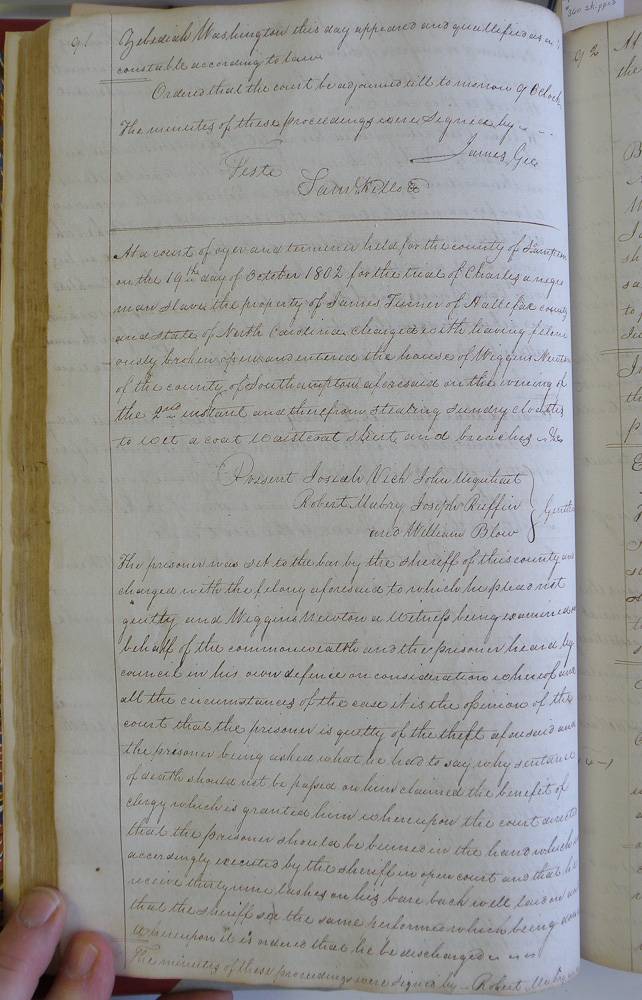 91
Zebediah Washington this day appeared and quallified as a
constable according to law
Ordered that the court be adjourned till to morrow 9 Oclock
The minutes of these proceedings were Signed by
James Gee
Teste
Saml Kello
At a court of oyer and terminer held for the county of
on the 19th day of October 1802 for the trial of Charles a negro
man slave the property of James Turner of Hallefax county
and state of North Carolina charged with having feloni
ously broken open and entered the house of Wiggins Newton
of the county of Southampton aforesaid on the evening of
the 2nd instant and therefrom stealing sundry cloathes
to wit a coat waistcoat Shirt and breaches
Present Josiah Vick John Urquhart
Robert Mabry Joseph Ruffin
and William Blow
The prisoner was set to the bar by the sheriff of this county and
charged with the felony aforesaid to which he plead not
guilty and Wiggins Newton a Witness being examined on
behalf of the commonwealth and the prisoner heard by
council in his own defence on consideration whereof and
all the circumstances of the case it is the opinion of the
court that the prisoner is guilty of the theft aforesaid and
the prisoner being asked what he had to say why sentance
of death should not be passed on him claimed the benefit of
clergy which is granted him whereupon the court directs
that the prisoner should be burned in the hand which is
accordingly executed by the sheriff in open court and that he
receive thirty nine lashes on his bare back well laid on and
that the sheriff see the same performed which being done
whereupon it is ordered that he be discharged
The minutes of these proceedings were signed by Robert Mabry
92